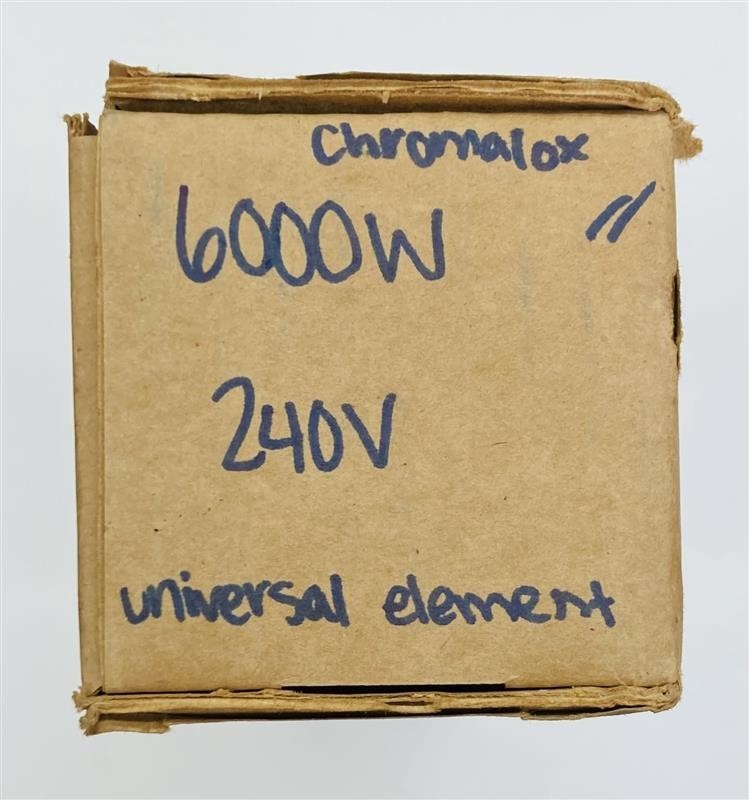 Chromalox
6000W "
240V
universal element